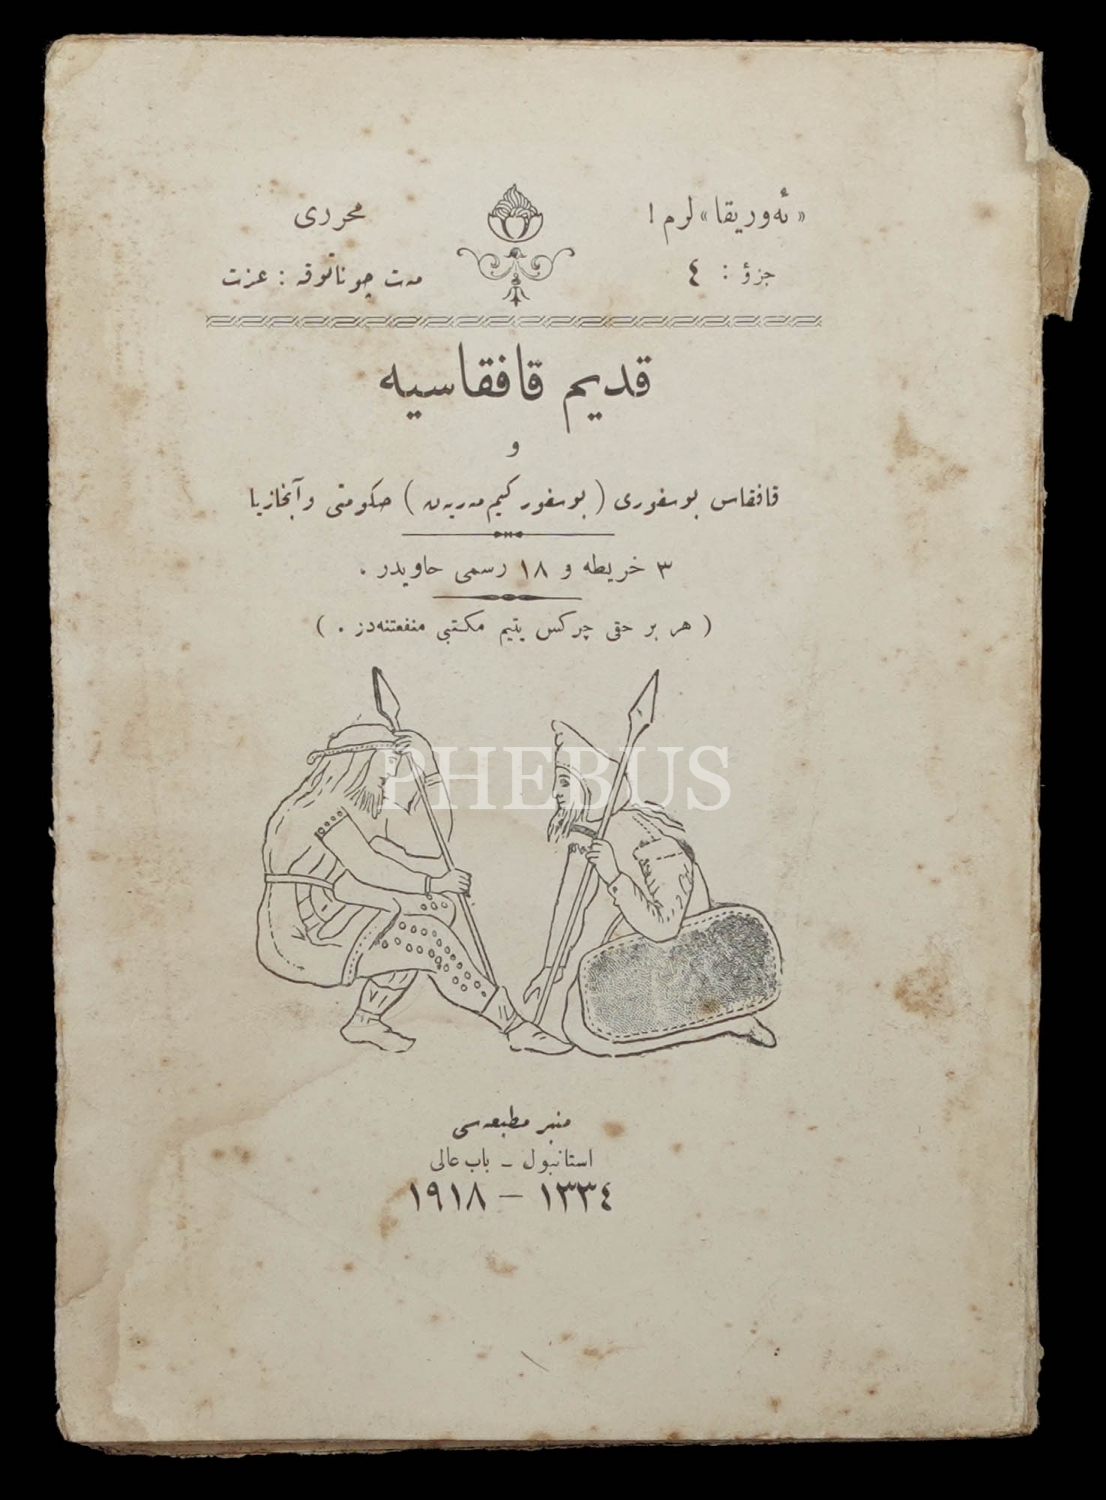 «ئه‌وريقا» لرم!
جزؤ : ٤
محررى
مه‌ت چوناتوقه : عزت
قديم قافقاسيه
و
قافقاس بوسفورى ( بوسفور كيم‌مه‌ريه‌ن ) حكومتى و آبخازيا
٣ خريطه و ١٨ رسمى حاويدر .
( هر بر حقى چركس يتيم مكتبى منفعتنه‌در . )
PHEBUS
منبر مطبعه‌سى
استانبول ـ باب عالى
١٣٣٤ – ١٩١٨